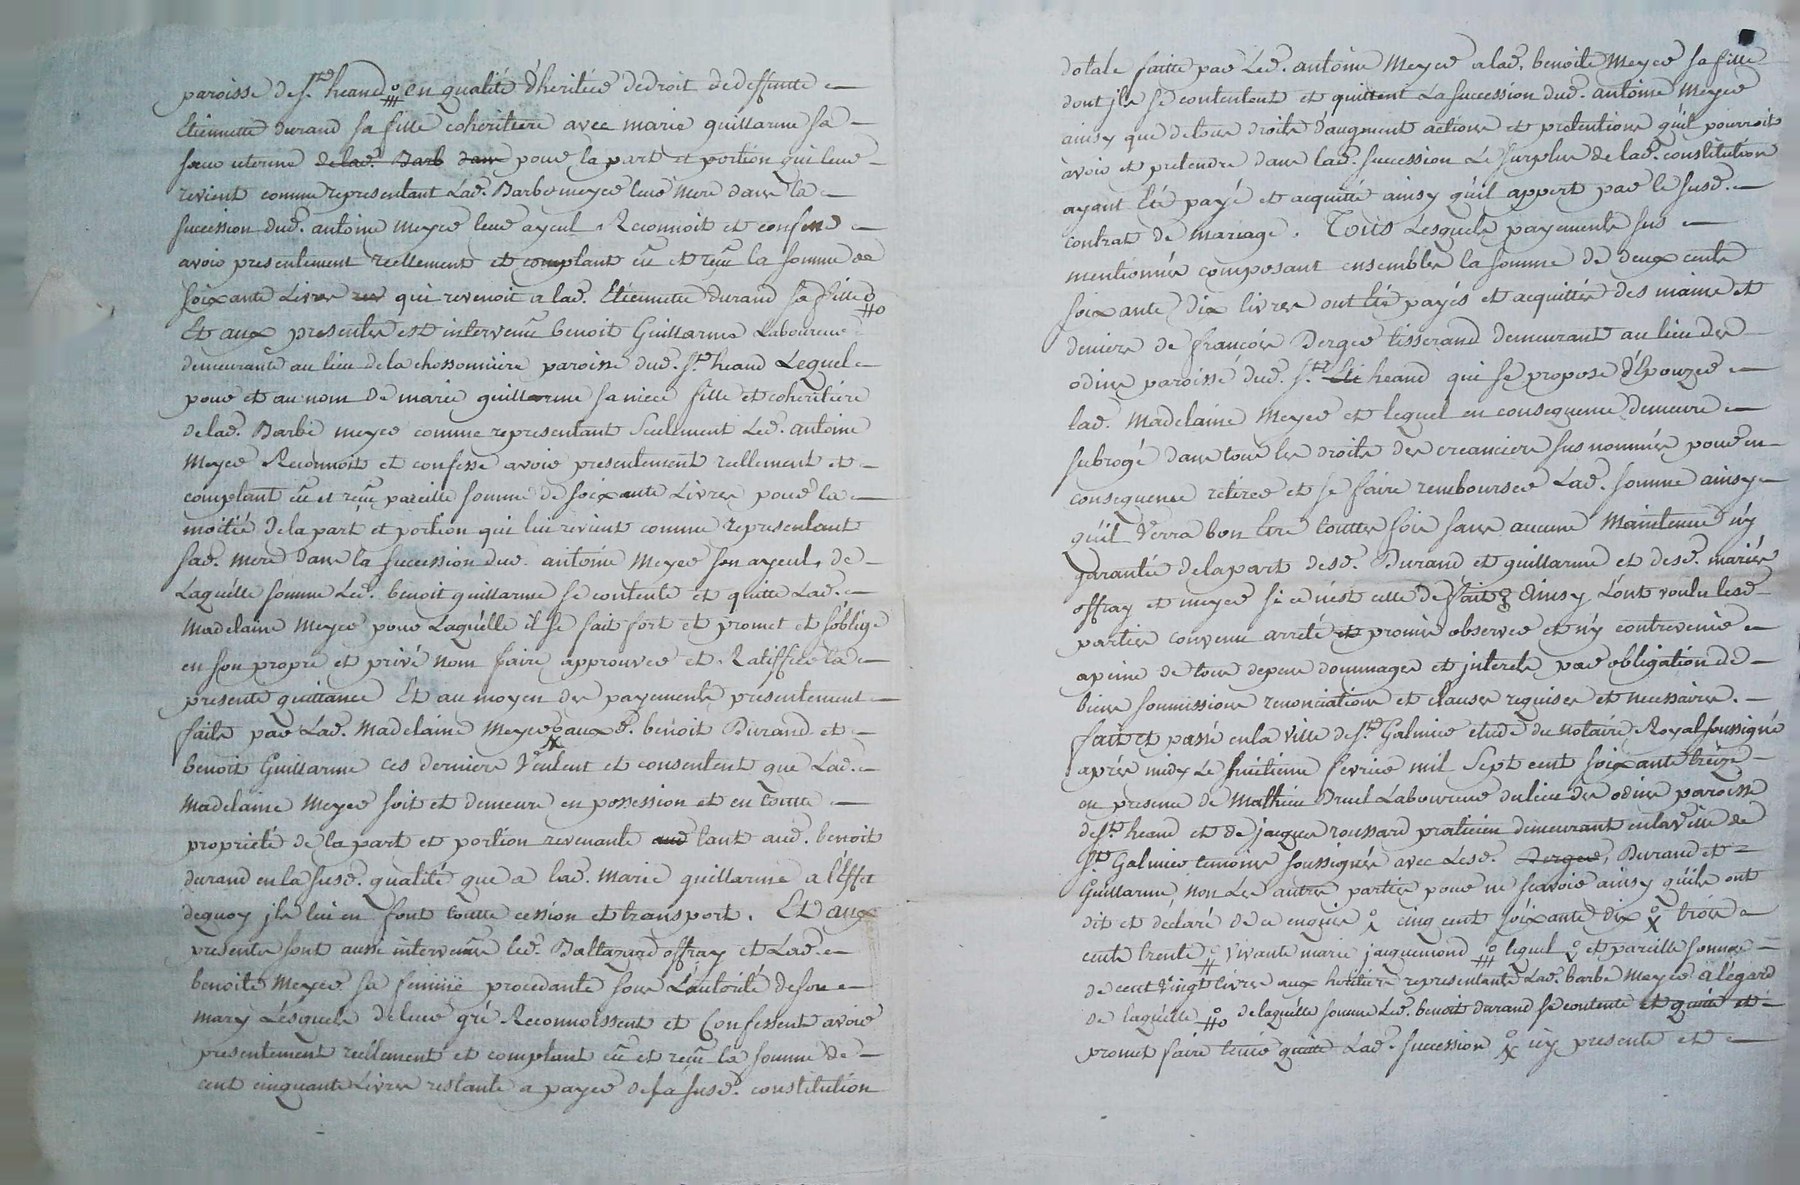 paroisse de st. heand en qualité d'heritier de droit de deffunte
Etiennette Durand sa fille coheritiere avec marie guillarme sa
sœur uterine de lad. Barb dans pour la part et portion qui leur
revient comme representant Lad. Barbe meyer leur mere dans la
succession dud. antoine meyer leur ayeul, Reconnoit et confesse
avoir presentement reellement et comptant eu et reçu la somme de
soixante Livres qui revenoit a lad. Etiennette Durand sa fille
Et aux presentes est intervenu benoit Guillarme Laboureur
demeurant au lieu de la chossonniere paroisse dud. st. heand Lequel
pour et au nom de marie guillarme sa niece fille et coheritiere
de lad. Barbe meyer comme representant Seulement Led. antoine
Meyer Reconnoit et confesse avoir presentement reellement et
comptant eu et reçu pareille somme de soixante Livres pour la
moitié de la part et portion qui lui revient comme representant
sad. mere dans la succession dud. antoine Meyer son ayeul, de
Laquelle somme Led. benoit guillarme se contente et quitte Lad.
Madelaine Meyer pour Laquelle il se fait fort et promet et s'oblige
en son propre et privé nom faire approuver et Ratiffier la
presente quittance Et au moyen des payements presentement
faits par Lad. Madelaine Meyer auxd. benoit Durand et
benoit Guillarme ces derniers Veulent et consentent que Lad.
Madelaine Meyer soit et demeure en possession et en toutte
proprieté de la part et portion revenante aud tant aud. benoit
durand en la susd. qualité que a lad. marie guillarme a l'Effet
de quoy ils lui en font toutte cession et transport. Et aux
presentes sont aussi intervenus led. Baltazard offray et Lad.
benoite Meyer sa femme procedante sous L'autorité de son
mary Lesquels de leur gré Reconnoissent et Confessent avoir
presentement reellement et comptant eu et reçu la somme de
cent cinquante Livres restante a payer de sa susd. constitution
dotale faitte par Led. antoine Meyer a lad. benoite Meyer sa fille
dont ils se contentent et quittent La succession dud. antoine Meyer
ainsy que de tous droits d'augment actions et pretentions qu'il pourroit
avoir et pretendre dans lad. succession Le surplus de lad. constitution
ayant été payé et acquitté ainsy qu'il appert par le susd.
contrat de mariage. Touts Lesquels payements sus
mentionnés composant ensembles la somme de deux cents
soixante dix livres ont été payés et acquittés des mains et
deniers de françois Berger tisserand demeurant au lieu des
odins paroisse dud. st. Et heand qui se propose d'Epouzer
lad. Madelaine Meyer et lequel en consequence demeure
subrogé dans tous les droits des creanciers susnommés pour en
consequence retirer et se faire rembourser Lad. somme ainsy
qu'il Verra bon être touttes fois sans aucune Maintenue n'y
garantie de la part desd. Durand et guillarme et desd. mariés
offray et meyer si ce n'est celle de fait Ainsy L'ont voulu lesd.
parties convenu arreté et promis observer et n'y contrevenir
a peine de tous depens dommages et interets par obligation de
biens soumissions renonciations et clauses requises et necessaires.
fait et passé en la ville de st. Galmier etude du notaire Royal soussigné
après midy Le huitieme fevrier mil Sept cent soixante treize
en presence de Mathieu Bruel Laboureur du lieu des odins paroisse
de st. heand et de jacques roussard praticien demeurant en la ville de
st. Galmier temoins soussignés avec Lesd. Berger, Durand et
Guillarme, non Les autres parties pour ne sçavoir ainsy qu'ils ont
dit et declaré de ce enquis cinq cent soixante dix trois
cents trente Vivante marie jacquemond lequel et pareille somme
de cent Vingt livres aux heritiers representants Lad. barbe Meyer a l'égard
de laquelle de laquelle somme Led. benoit durand se contente et quitte et
promet faire tenir quitte Lad. succession icy presente et